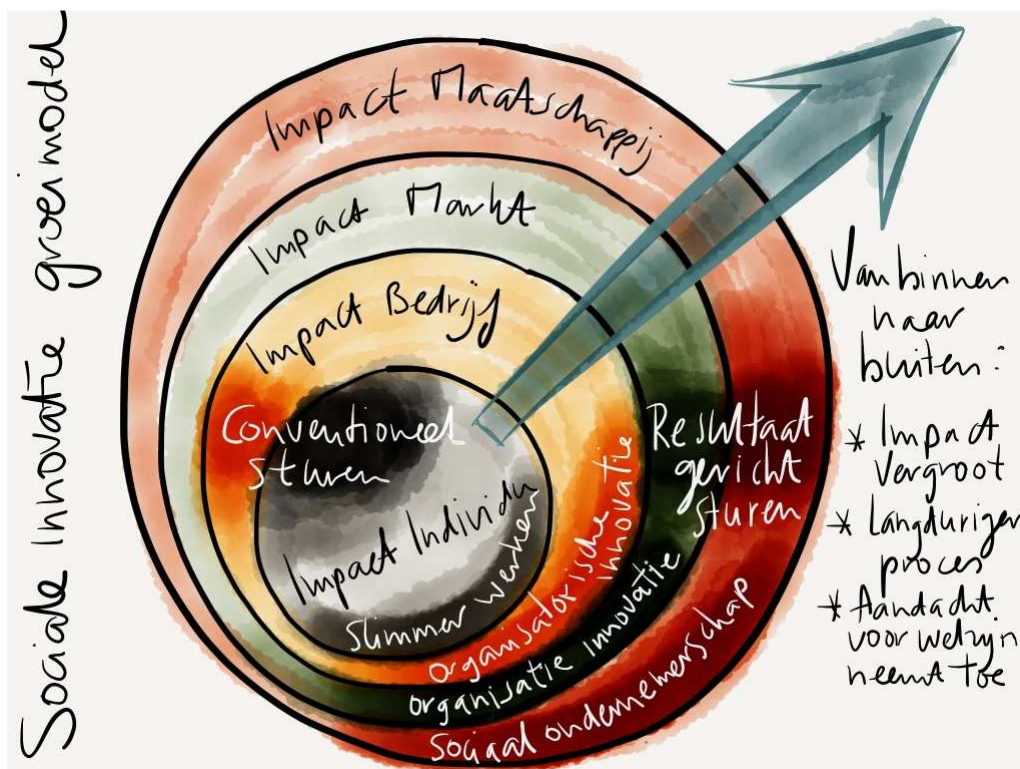 Sociale Innovatie groeimodel
Impact Maatschappij
Impact Markt
Impact Bedrijf
Conventioneel
sturen
Impact Individu
Slimmer werken
organisatorische
innovatie
organisatie innovatie
Sociaal ondernemerschap
Resultaat
gericht
sturen
Van binnen
naar
buiten:
* Impact
vergroot
* Langduriger
proces
* Aandacht
voor welzijn
neemt toe